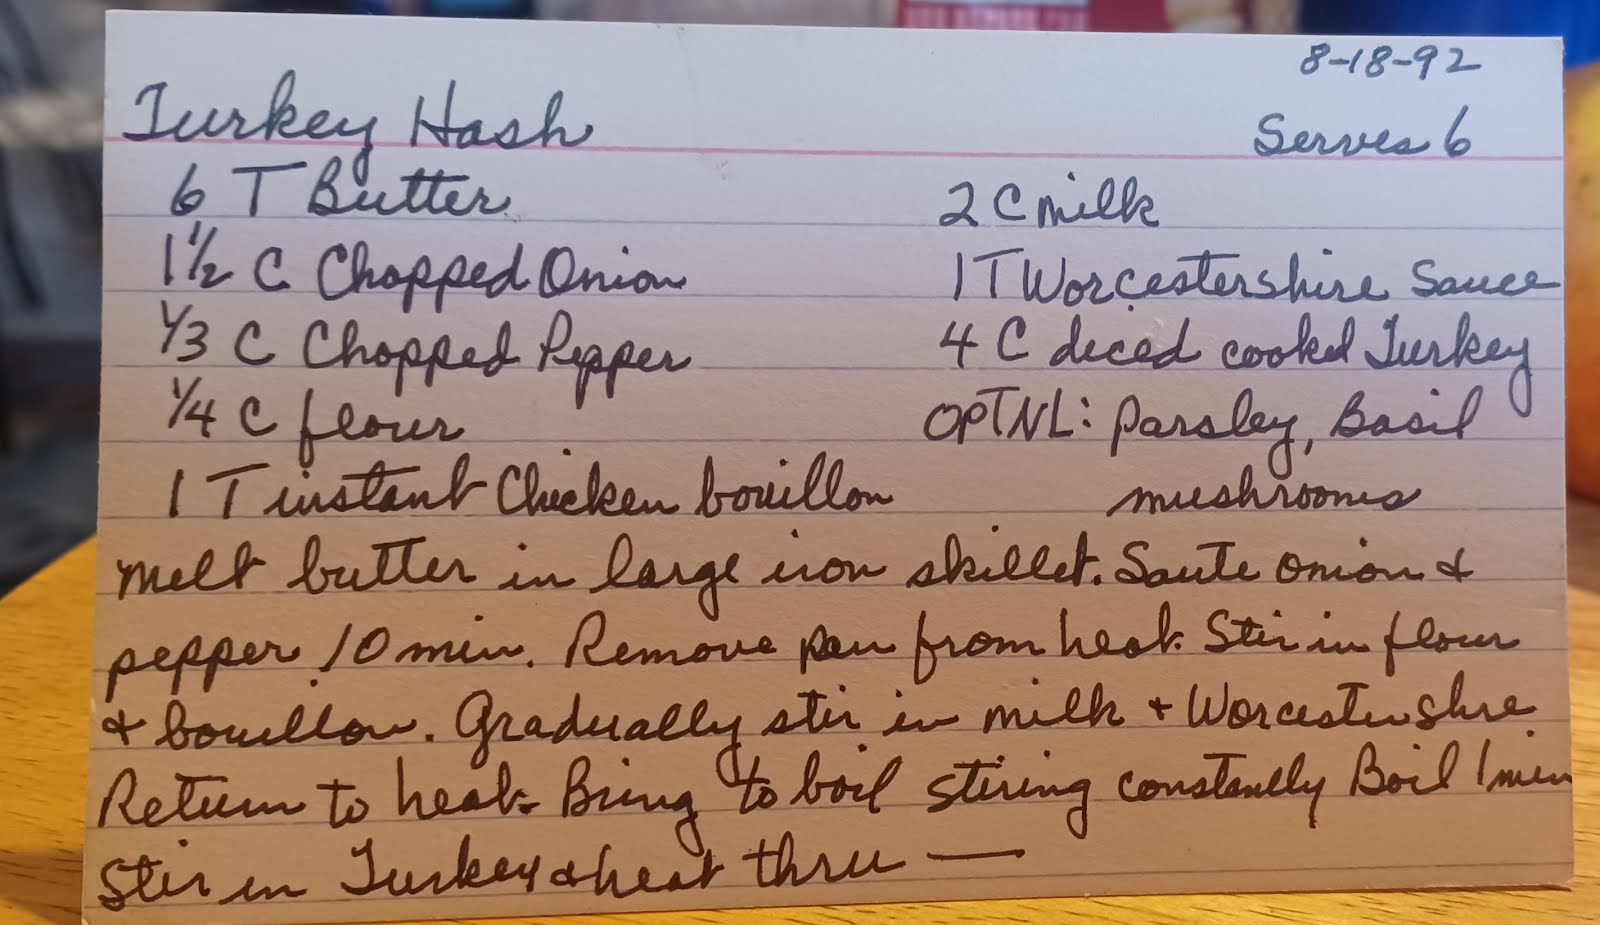 8-18-92
Turkey Hash
Serves 6
6 T Butter
1 1/2 C Chopped Onion
1/3 C Chopped Pepper
1/4 C flour
1 T instant Chicken bouillon
2 C milk
1 T Worcestershire Sauce
4 C diced cooked Turkey
OPTNL: parsley, Basil
mushrooms
Melt butter in large iron skillet. Saute onion &
pepper 10 min. Remove pan from heat. Stir in flour
& bouillon. Gradually stir in milk & Worcestershire
Return to heat. Bring to boil stiring constantly Boil 1 min
Stir in Turkey & heat thru —